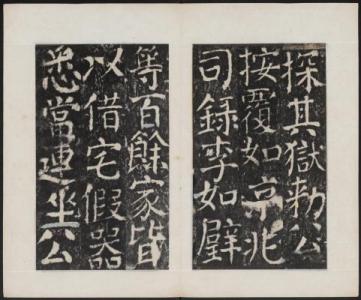 探其獄勑公
按覆如京兆
司録李如璧
等百餘家皆
以借宅假器
悉當連坐公